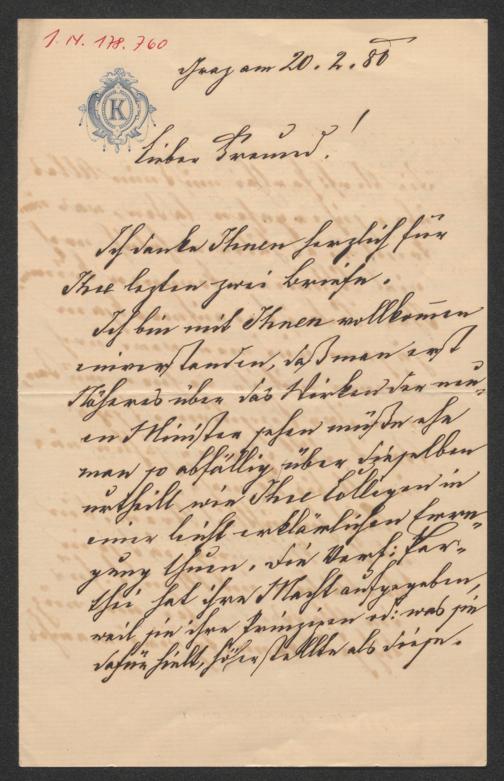 J. N. 178.760
K
Graz am 20. 2. 80
Lieber Freund!
Ich danke Ihnen herzlich für
Ihre lezten zwei Briefe.
Ich bin mit Ihnen vollkom̄en
einverstanden, daß man erst
Näheres über das Wirken der neu-
en Minister sehen müßte ehe
man so abfällig über dieselben
urtheilt wie Ihre Collegen in
einer leicht erklärlichen Erre-
gung thuen. Die Verf: Par-
thei hat ihre Macht aufgegeben,
weil sie ihre Prinzipien od: was sie
dafür hielt, höher stellte als diese.